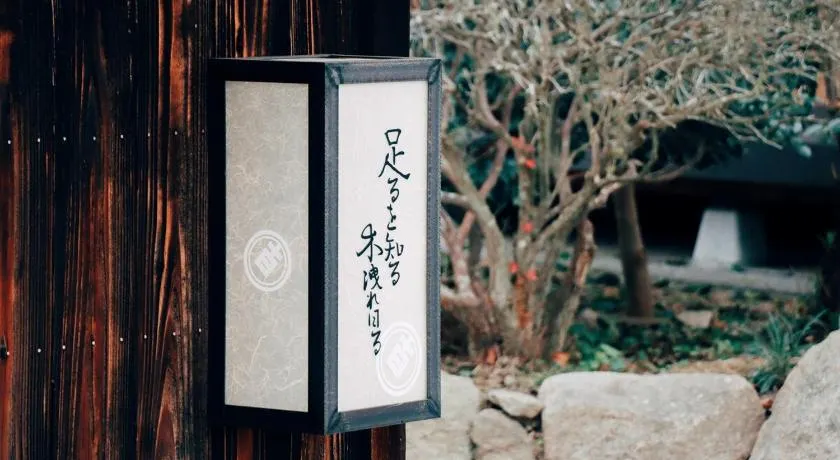 足るを知る
木洩れ日る